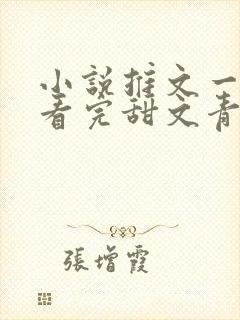 小説推文一
看完甜文青
張增霞